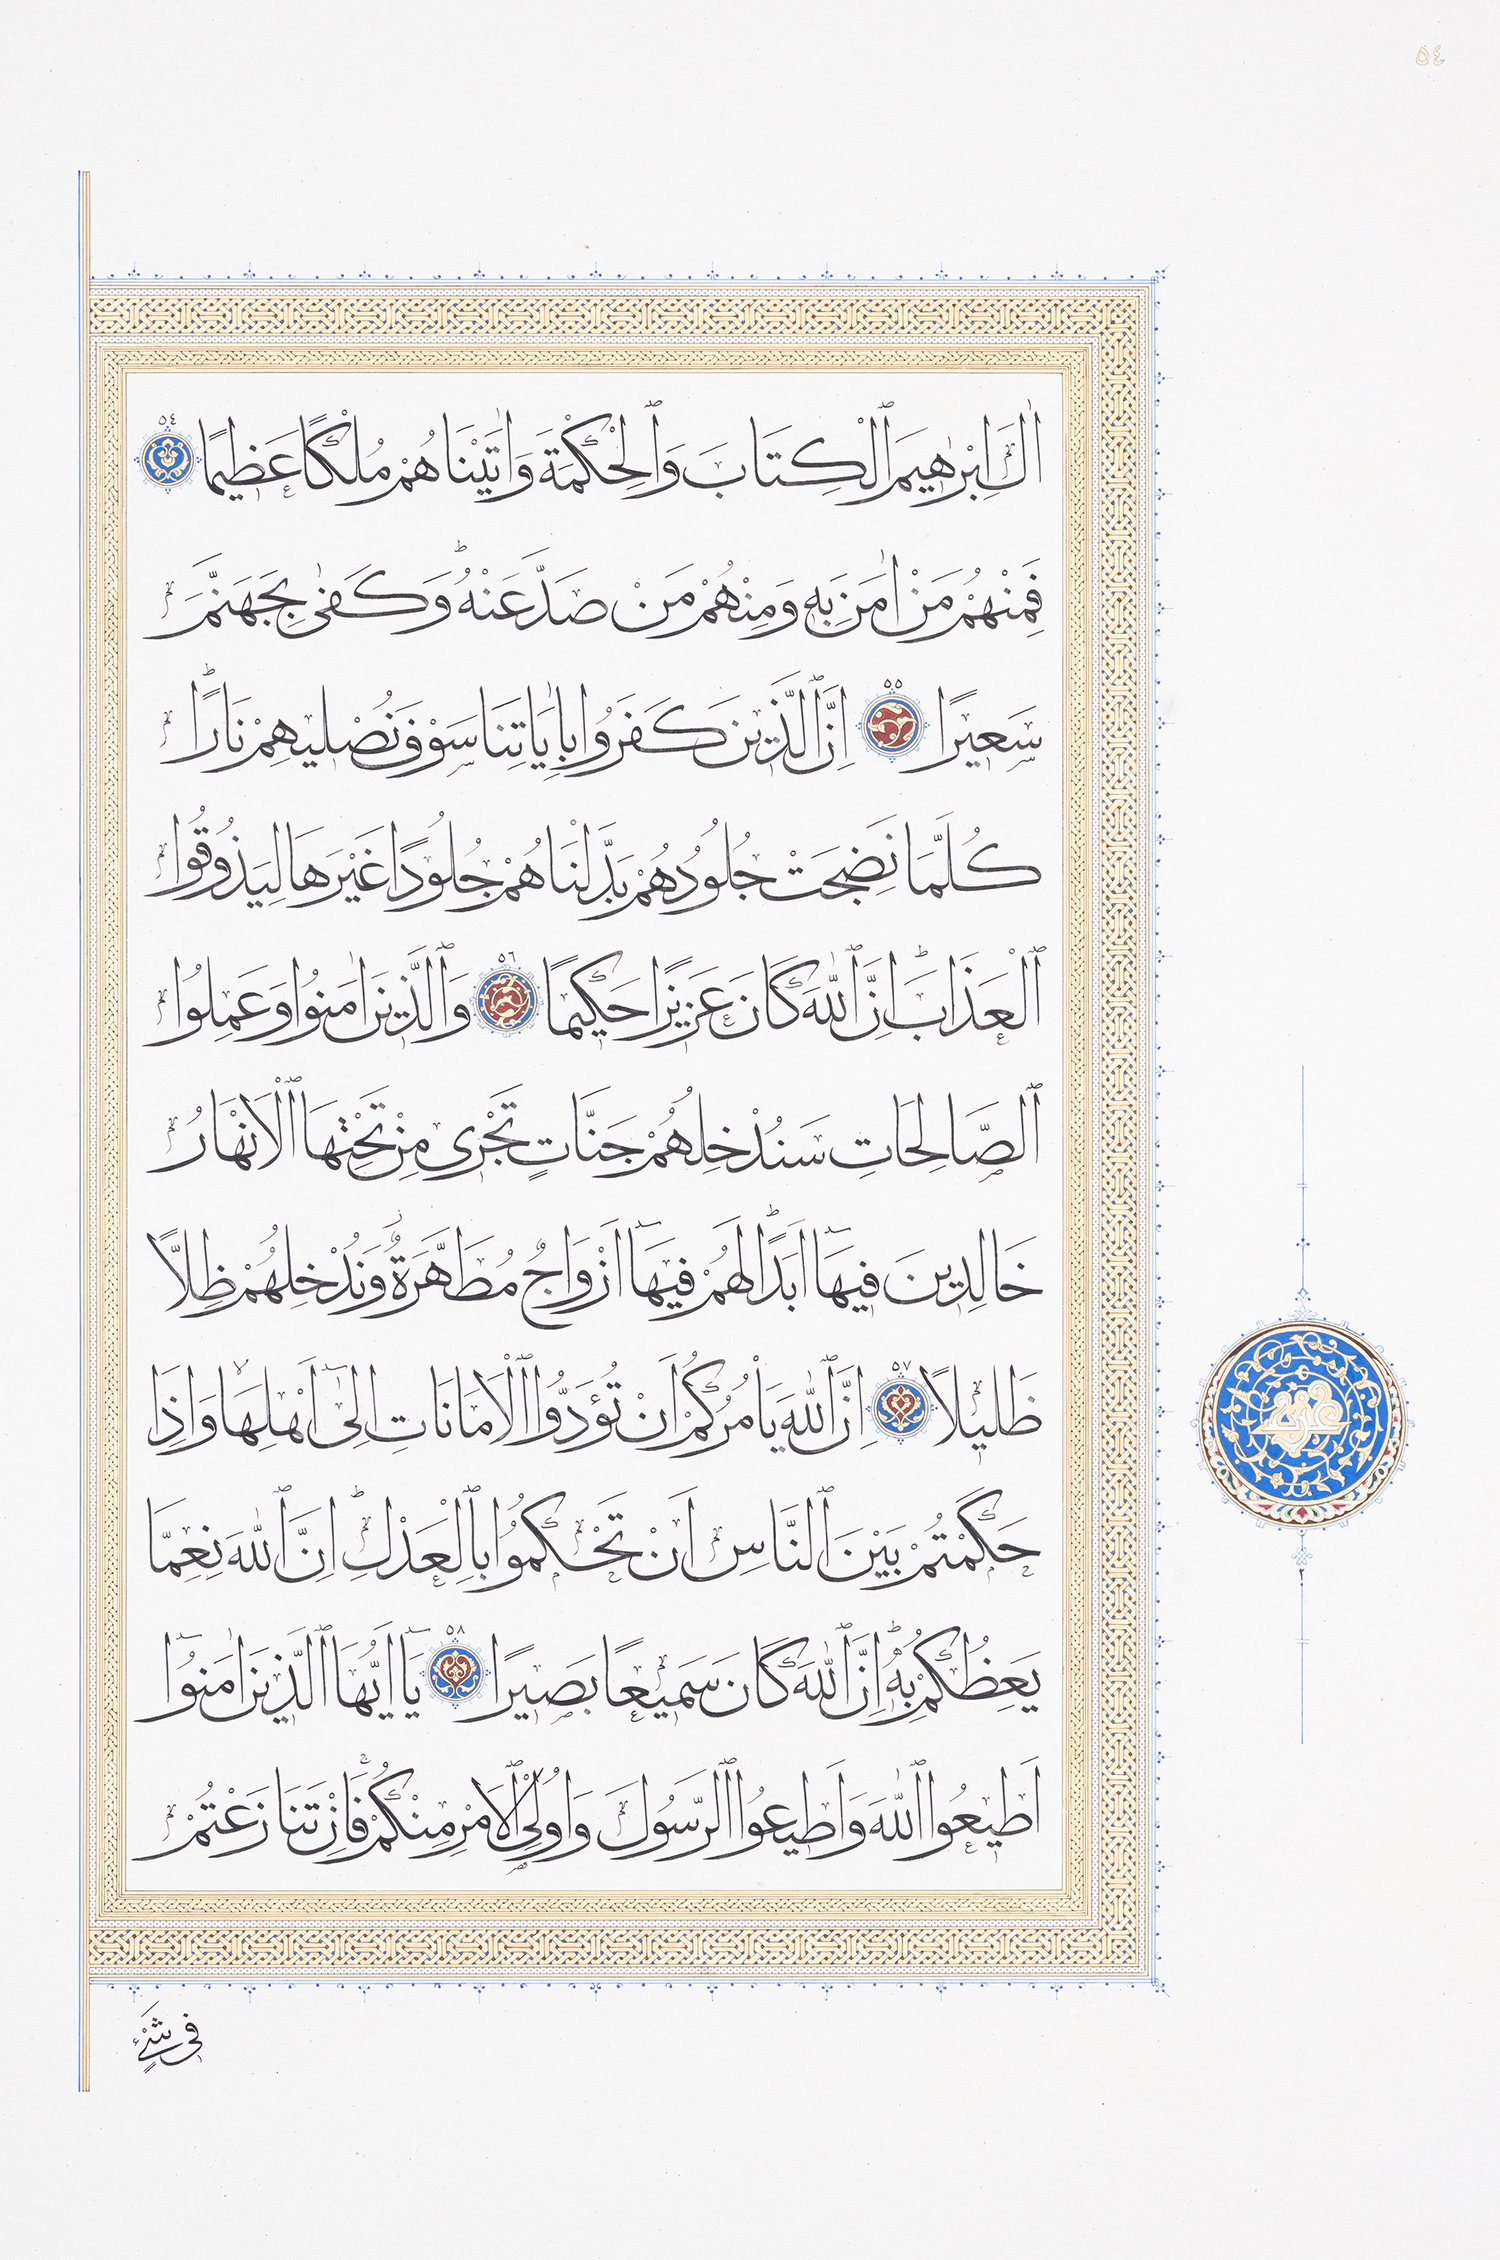 ٥٤
اٰلَ اِبْرٰهٖيمَ ٱلْكِتَابَ وَٱلْحِكْمَةَ وَاٰتَيْنَاهُمْ مُلْكًا عَظٖيمًا ٥٤
فَمِنْهُمْ مَنْ اٰمَنَ بِهٖ وَمِنْهُمْ مَنْ صَدَّ عَنْهُ ۜ وَكَفٰى بِجَهَنَّمَ
سَعٖيرًا ٥٥ اِنَّ ٱلَّذٖينَ كَفَرُوا بِاٰيَاتِنَا سَوْفَ نُصْلٖيهِمْ نَارًا ۜ
كُلَّمَا نَضِجَتْ جُلُودُهُمْ بَدَّلْنَاهُمْ جُلُودًا غَيْرَهَا لِيَذُوقُوا
ٱلْعَذَابَ ۜ اِنَّ ٱللّٰهَ كَانَ عَزٖيزًا حَكٖيمًا ٥٦ وَٱلَّذٖينَ اٰمَنُوا وَعَمِلُوا
ٱلصَّالِحَاتِ سَنُدْخِلُهُمْ جَنَّاتٍ تَجْرٖى مِنْ تَحْتِهَا ٱلْاَنْهَارُ
خَالِدٖينَ فٖيهَٓا اَبَدًا ۜ لَهُمْ فٖيهَٓا اَزْوَاجٌ مُطَهَّرَةٌ ۘ وَنُدْخِلُهُمْ ظِلًّا
ظَلٖيلًا ٥٧ اِنَّ ٱللّٰهَ يَاْمُرُكُمْ اَنْ تُؤَدُّوا ٱلْاَمَانَاتِ اِلٰٓى اَهْلِهَا ۙ وَاِذَا
حَكَمْتُمْ بَيْنَ ٱلنَّاسِ اَنْ تَحْكُمُوا بِٱلْعَدْلِ ۜ اِنَّ ٱللّٰهَ نِعِمَّا
يَعِظُكُمْ بِهٖ ۜ اِنَّ ٱللّٰهَ كَانَ سَمٖيعًا بَصٖيرًا ٥٨ يَٓا اَيُّهَا ٱلَّذٖينَ اٰمَنُٓوا
اَطٖيعُوا ٱللّٰهَ وَاَطٖيعُوا ٱلرَّسُولَ وَاُولِى ٱلْاَمْرِ مِنْكُمْ ۚ فَاِنْ تَنَازَعْتُمْ
فٖى شَىْءٍ
٢